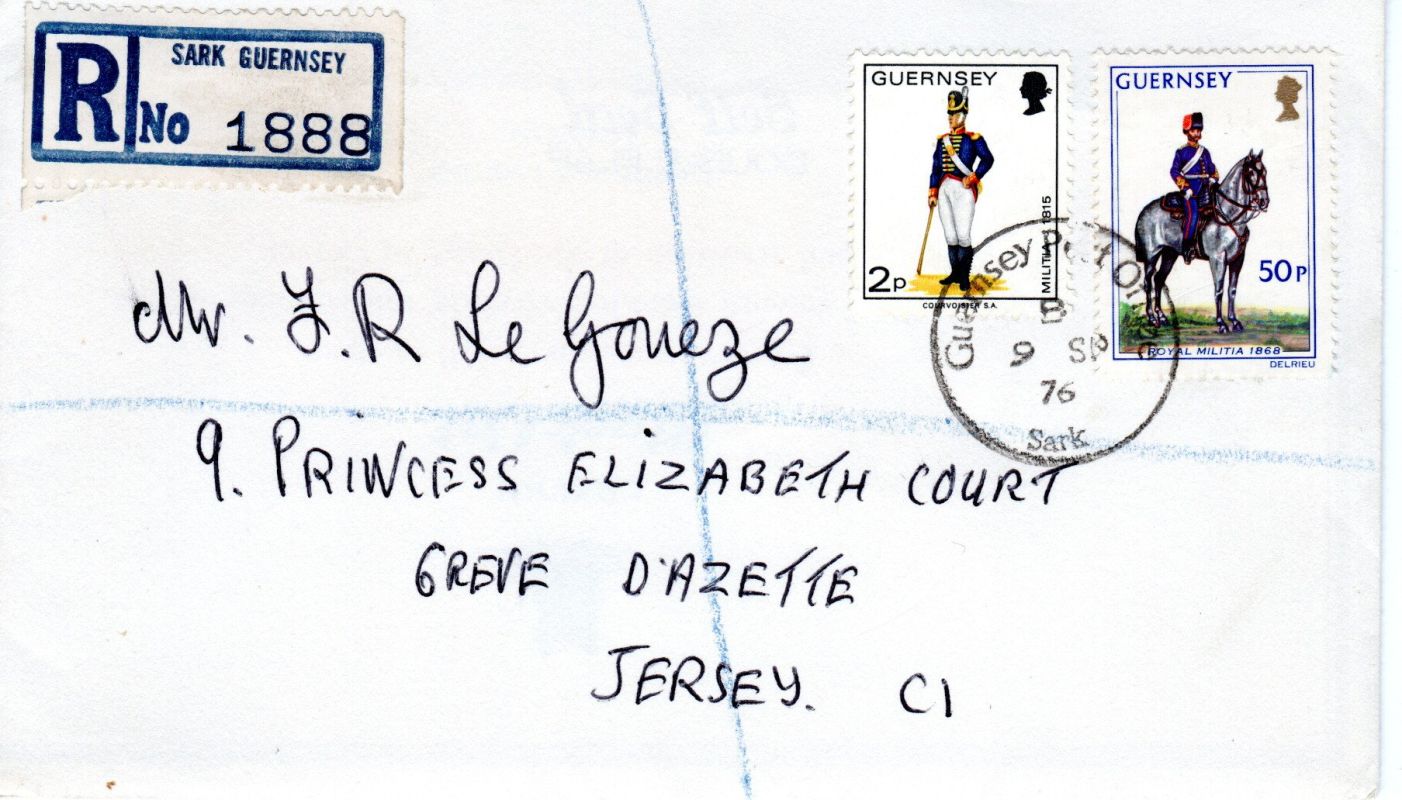 R
SARK GUERNSEY
No 1888
GUERNSEY
MILITIA 1815
2p
COURVOISIER S.A.
GUERNSEY
50P
ROYAL MILITIA 1868
DELRIEU
Guernsey Post Office
B
9 SP
76
Sark
Mr. F. R Le Goueze
9. PRINCESS ELIZABETH COURT
GREVE D'AZETTE
JERSEY. CI